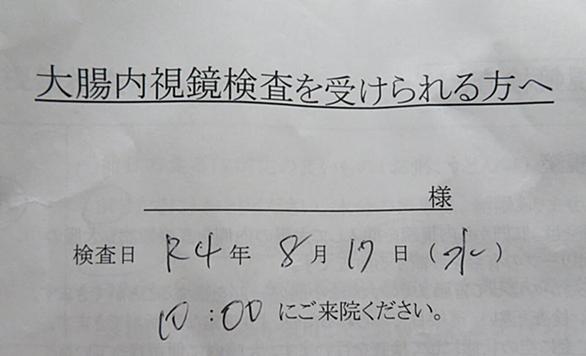 大腸内視鏡検査を受けられる方へ
様
検査日 R4年 8月17日(水)
10:00 にご来院ください。